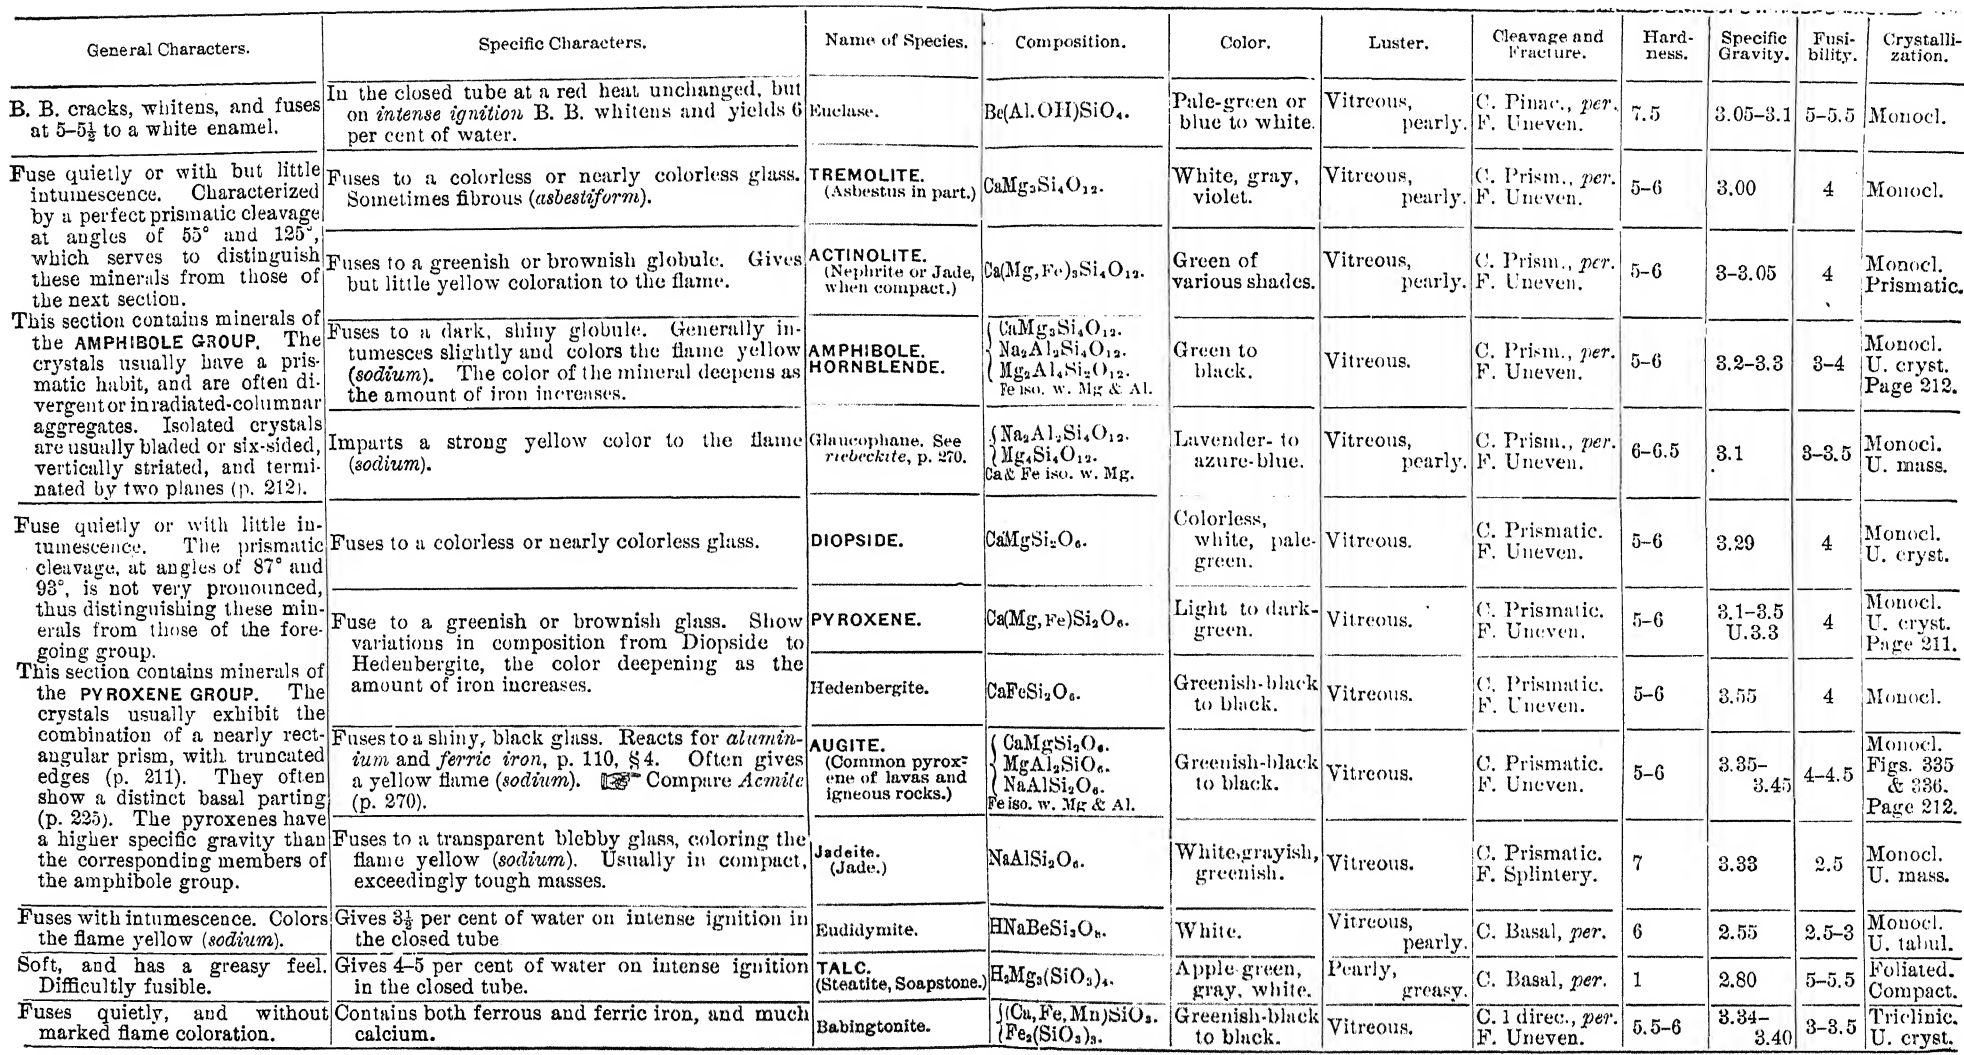 General Characters.
Specific Characters.
Name of Species.
Composition.
Color.
Luster.
Cleavage and
Fracture.
Hard-
ness.
Specific
Gravity.
Fusi-
bility.
Crystalli-
zation.
B. B. cracks, whitens, and fuses
at 5–5½ to a white enamel.
In the closed tube at a red heat unchanged, but
on intense ignition B. B. whitens and yields 6
per cent of water.
Euclase.
Be(Al.OH)SiO₄.
Pale-green or
blue to white.
Vitreous,
pearly.
C. Pinac., per.
F. Uneven.
7.5
3.05–3.1
5–5.5
Monocl.
Fuse quietly or with but little
intumescence. Characterized
by a perfect prismatic cleavage
at angles of 55° and 125°,
which serves to distinguish
these minerals from those of
the next section.
This section contains minerals of
the AMPHIBOLE GROUP. The
crystals usually have a pris-
matic habit, and are often di-
vergent or in radiated-columnar
aggregates. Isolated crystals
are usually bladed or six-sided,
vertically striated, and termi-
nated by two planes (p. 212).
Fuses to a colorless or nearly colorless glass.
Sometimes fibrous (asbestiform).
TREMOLITE.
(Asbestus in part.)
CaMg₃Si₄O₁₂.
White, gray,
violet.
Vitreous,
pearly.
C. Prism., per.
F. Uneven.
5–6
3.00
4
Monocl.
Fuses to a greenish or brownish globule. Gives
but little yellow coloration to the flame.
ACTINOLITE.
(Nephrite or Jade,
when compact.)
Ca(Mg,Fe)₃Si₄O₁₂.
Green of
various shades.
Vitreous,
pearly.
C. Prism., per.
F. Uneven.
5–6
3–3.05
4
Monocl.
Prismatic.
Fuses to a dark, shiny globule. Generally in-
tumesces slightly and colors the flame yellow
(sodium). The color of the mineral deepens as
the amount of iron increases.
AMPHIBOLE.
HORNBLENDE.
CaMg₃Si₄O₁₂.
Na₂Al₂Si₄O₁₂.
Mg₂Al₄Si₂O₁₂.
Fe iso. w. Mg & Al.
Green to
black.
Vitreous.
C. Prism., per.
F. Uneven.
5–6
3.2–3.3
3–4
Monocl.
U. cryst.
Page 212.
Imparts a strong yellow color to the flame
(sodium).
Glaucophane. See
riebeckite, p. 270.
Na₂Al₂Si₄O₁₂.
Mg₄Si₄O₁₂.
Ca & Fe iso. w. Mg.
Lavender- to
azure-blue.
Vitreous,
pearly.
C. Prism., per.
F. Uneven.
6–6.5
3.1
3–3.5
Monocl.
U. mass.
Fuse quietly or with little in-
tumescence. The prismatic
cleavage, at angles of 87° and
93°, is not very pronounced,
thus distinguishing these min-
erals from those of the fore-
going group.
This section contains minerals of
the PYROXENE GROUP. The
crystals usually exhibit the
combination of a nearly rect-
angular prism, with truncated
edges (p. 211). They often
show a distinct basal parting
(p. 225). The pyroxenes have
a higher specific gravity than
the corresponding members of
the amphibole group.
Fuses to a colorless or nearly colorless glass.
DIOPSIDE.
CaMgSi₂O₆.
Colorless,
white, pale-
green.
Vitreous.
C. Prismatic.
F. Uneven.
5–6
3.29
4
Monocl.
U. cryst.
Fuse to a greenish or brownish glass. Show
variations in composition from Diopside to
Hedenbergite, the color deepening as the
amount of iron increases.
PYROXENE.
Ca(Mg,Fe)Si₂O₆.
Light to dark-
green.
Vitreous.
C. Prismatic.
F. Uneven.
5–6
3.1–3.5
U.3.3
4
Monocl.
U. cryst.
Page 211.
Hedenbergite.
CaFeSi₂O₆.
Greenish-black
to black.
Vitreous.
C. Prismatic.
F. Uneven.
5–6
3.55
4
Monocl.
Fuses to a shiny, black glass. Reacts for alumin-
ium and ferric iron, p. 110, §4. Often gives
a yellow flame (sodium). ☞ Compare Acmite
(p. 270).
AUGITE.
(Common pyrox-
ene of lavas and
igneous rocks.)
CaMgSi₂O₆.
MgAl₂SiO₆.
NaAlSi₂O₆.
Fe iso. w. Mg & Al.
Greenish-black
to black.
Vitreous.
C. Prismatic.
F. Uneven.
5–6
3.35–
3.45
4–4.5
Monocl.
Figs. 335
& 336.
Page 212.
Fuses to a transparent blebby glass, coloring the
flame yellow (sodium). Usually in compact,
exceedingly tough masses.
Jadeite.
(Jade.)
NaAlSi₂O₆.
White, grayish,
greenish.
Vitreous.
C. Prismatic.
F. Splintery.
7
3.33
2.5
Monocl.
U. mass.
Fuses with intumescence. Colors
the flame yellow (sodium).
Gives 3½ per cent of water on intense ignition in
the closed tube
Eudidymite.
HNaBeSi₃O₈.
White.
Vitreous,
pearly.
C. Basal, per.
6
2.55
2.5–3
Monocl.
U. tabul.
Soft, and has a greasy feel.
Difficultly fusible.
Gives 4–5 per cent of water on intense ignition
in the closed tube.
TALC.
(Steatite, Soapstone.)
H₂Mg₃(SiO₃)₄.
Apple-green,
gray, white.
Pearly,
greasy.
C. Basal, per.
1
2.80
5–5.5
Foliated.
Compact.
Fuses quietly, and without
marked flame coloration.
Contains both ferrous and ferric iron, and much
calcium.
Babingtonite.
(Ca,Fe,Mn)SiO₃.
Fe₂(SiO₃)₃.
Greenish-black
to black.
Vitreous.
C. 1 direc., per.
F. Uneven.
5.5–6
3.34–
3.40
3–3.5
Triclinic.
U. cryst.